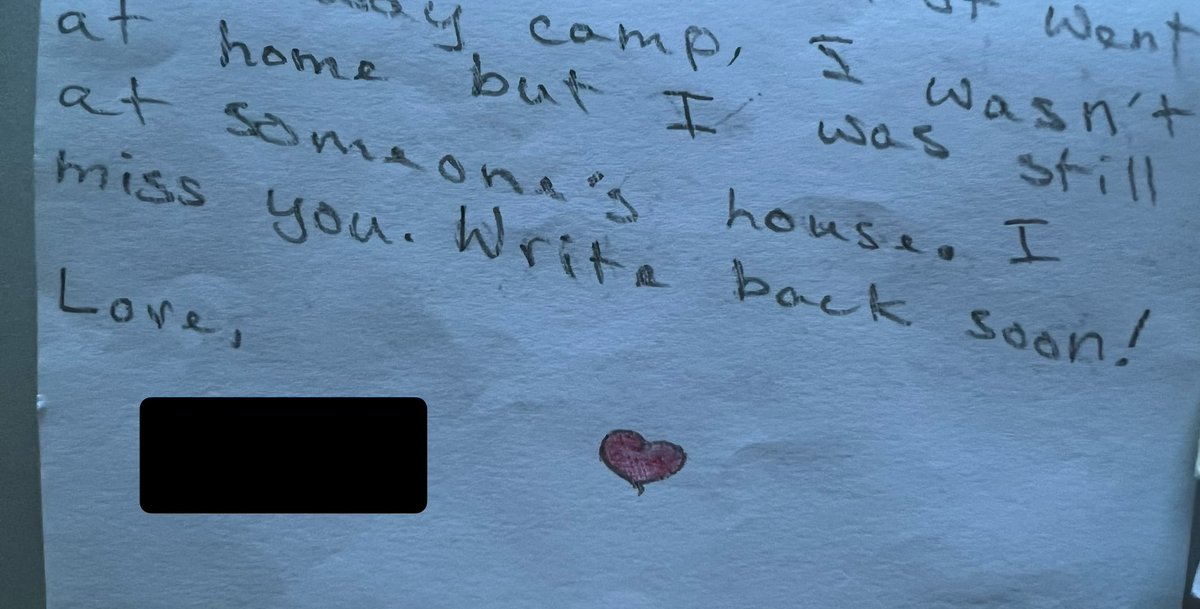 went
camp, I wasn't
at home but I was still
at someone's house. I
miss you. Write back soon!
Love,